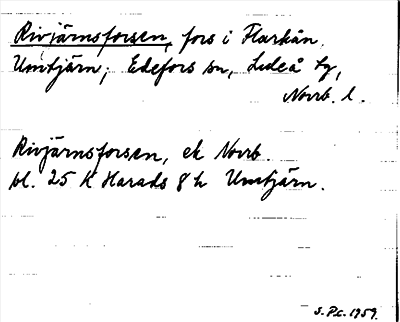 Rivjärnsforsen, fors i Flarkån,
Umtjärn; Edefors sn, Luleå tg,
Norrb. l.
Rivjärnsforsen, ek Norrb
bl. 25 K Harads 8 h Umtjärn.
S. Pl. 1959.